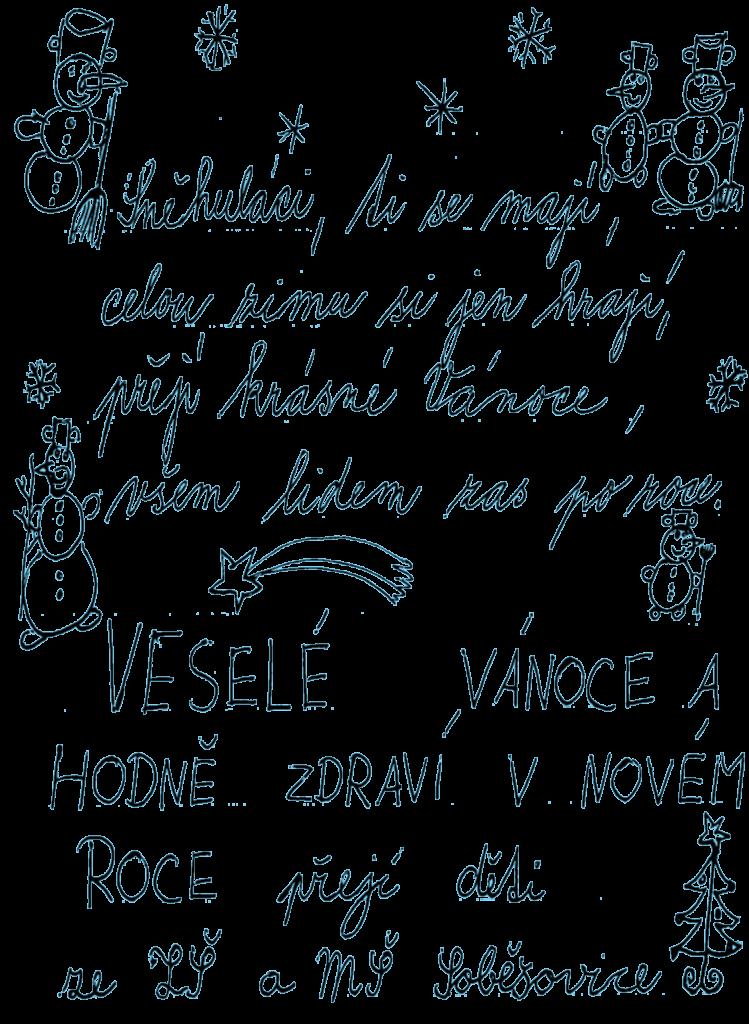 Sněhuláci, ti se mají,
celou zimu si jen hrají,
přejí krásné Vánoce,
všem lidem zas po roce.
VESELÉ VÁNOCE A
HODNĚ ZDRAVÍ V NOVÉM
ROCE přejí děti
ze ZŠ a MŠ Soběšovice